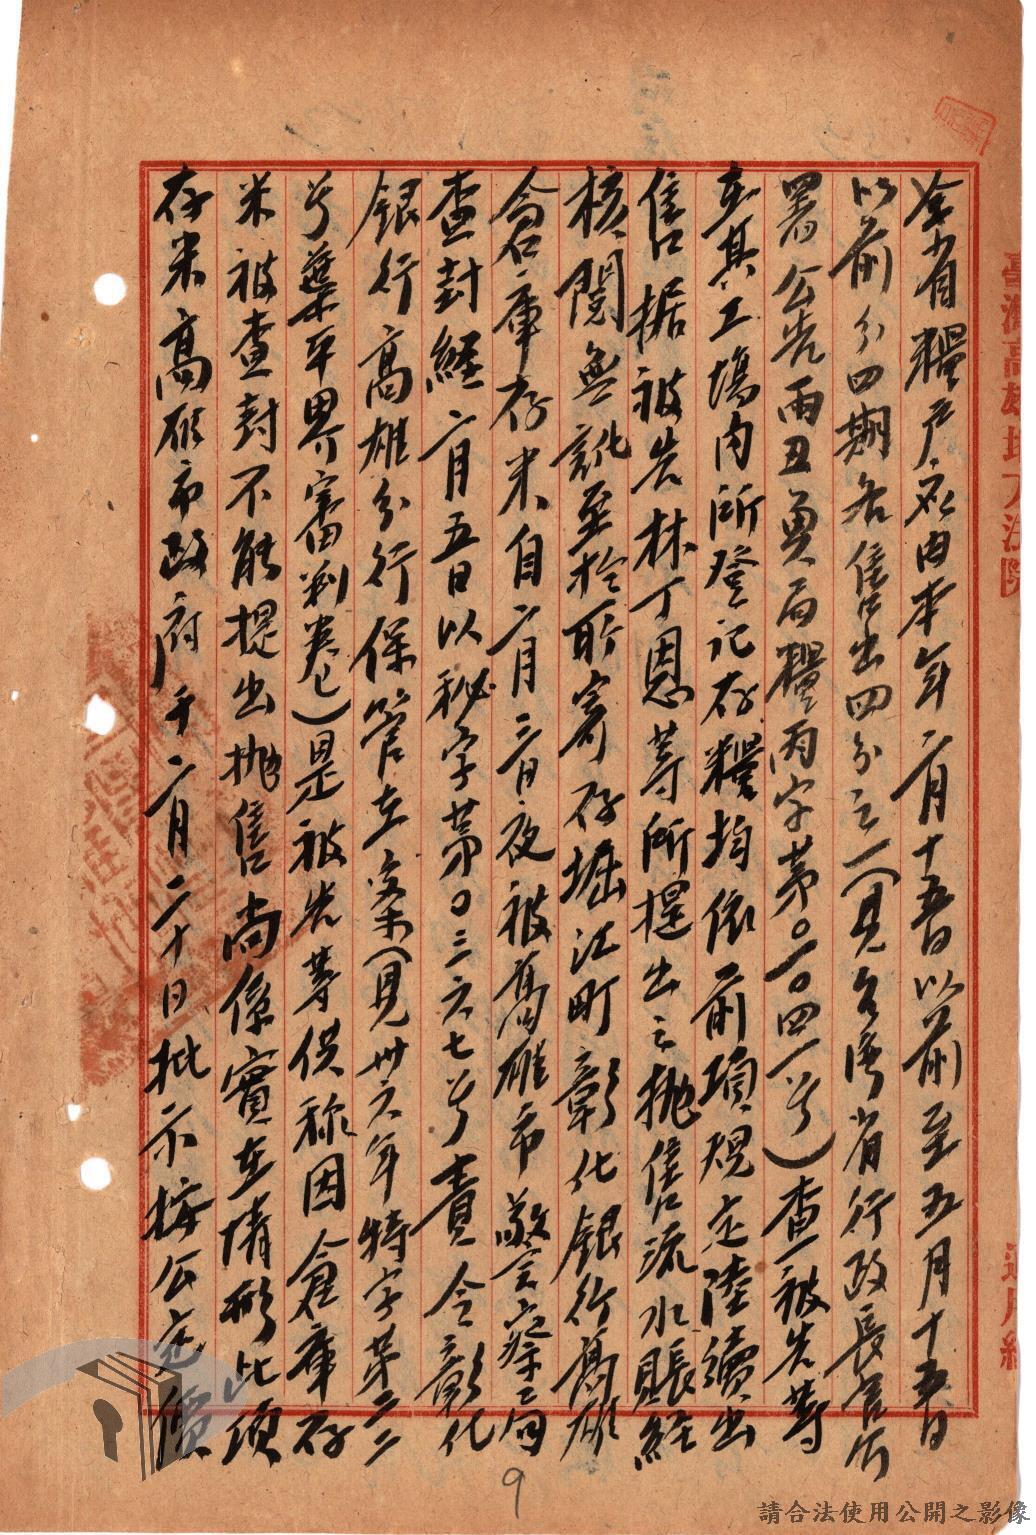 全省糧戶应由本年二月十五日以前至五月十五日
以前分四期各售出四分之一(見台湾省行政長官公
署公告丙丑寅而糧丙字第0一0四一号)查被告等
在其工場内所登記存糧均依前項規定陸續出
售据被告林丁恩等所提出之拋售流水賬経
核閱無訛至於所寄存堀江町彰化銀行高雄
倉庫存米自二月三日夜被高雄市警察局
查封経二月五日以秘字第0三六七号責令彰化
銀行高雄分行保管在案(見卅六年特字第二二
号葉平界審判卷)是被告等供称因倉庫存
米被查封不能提出拋售尚係實在情形此項
存米高雄市政府于二月二十日批示按公定價
臺灣高雄地方法院
請合法使用公開之影像
9